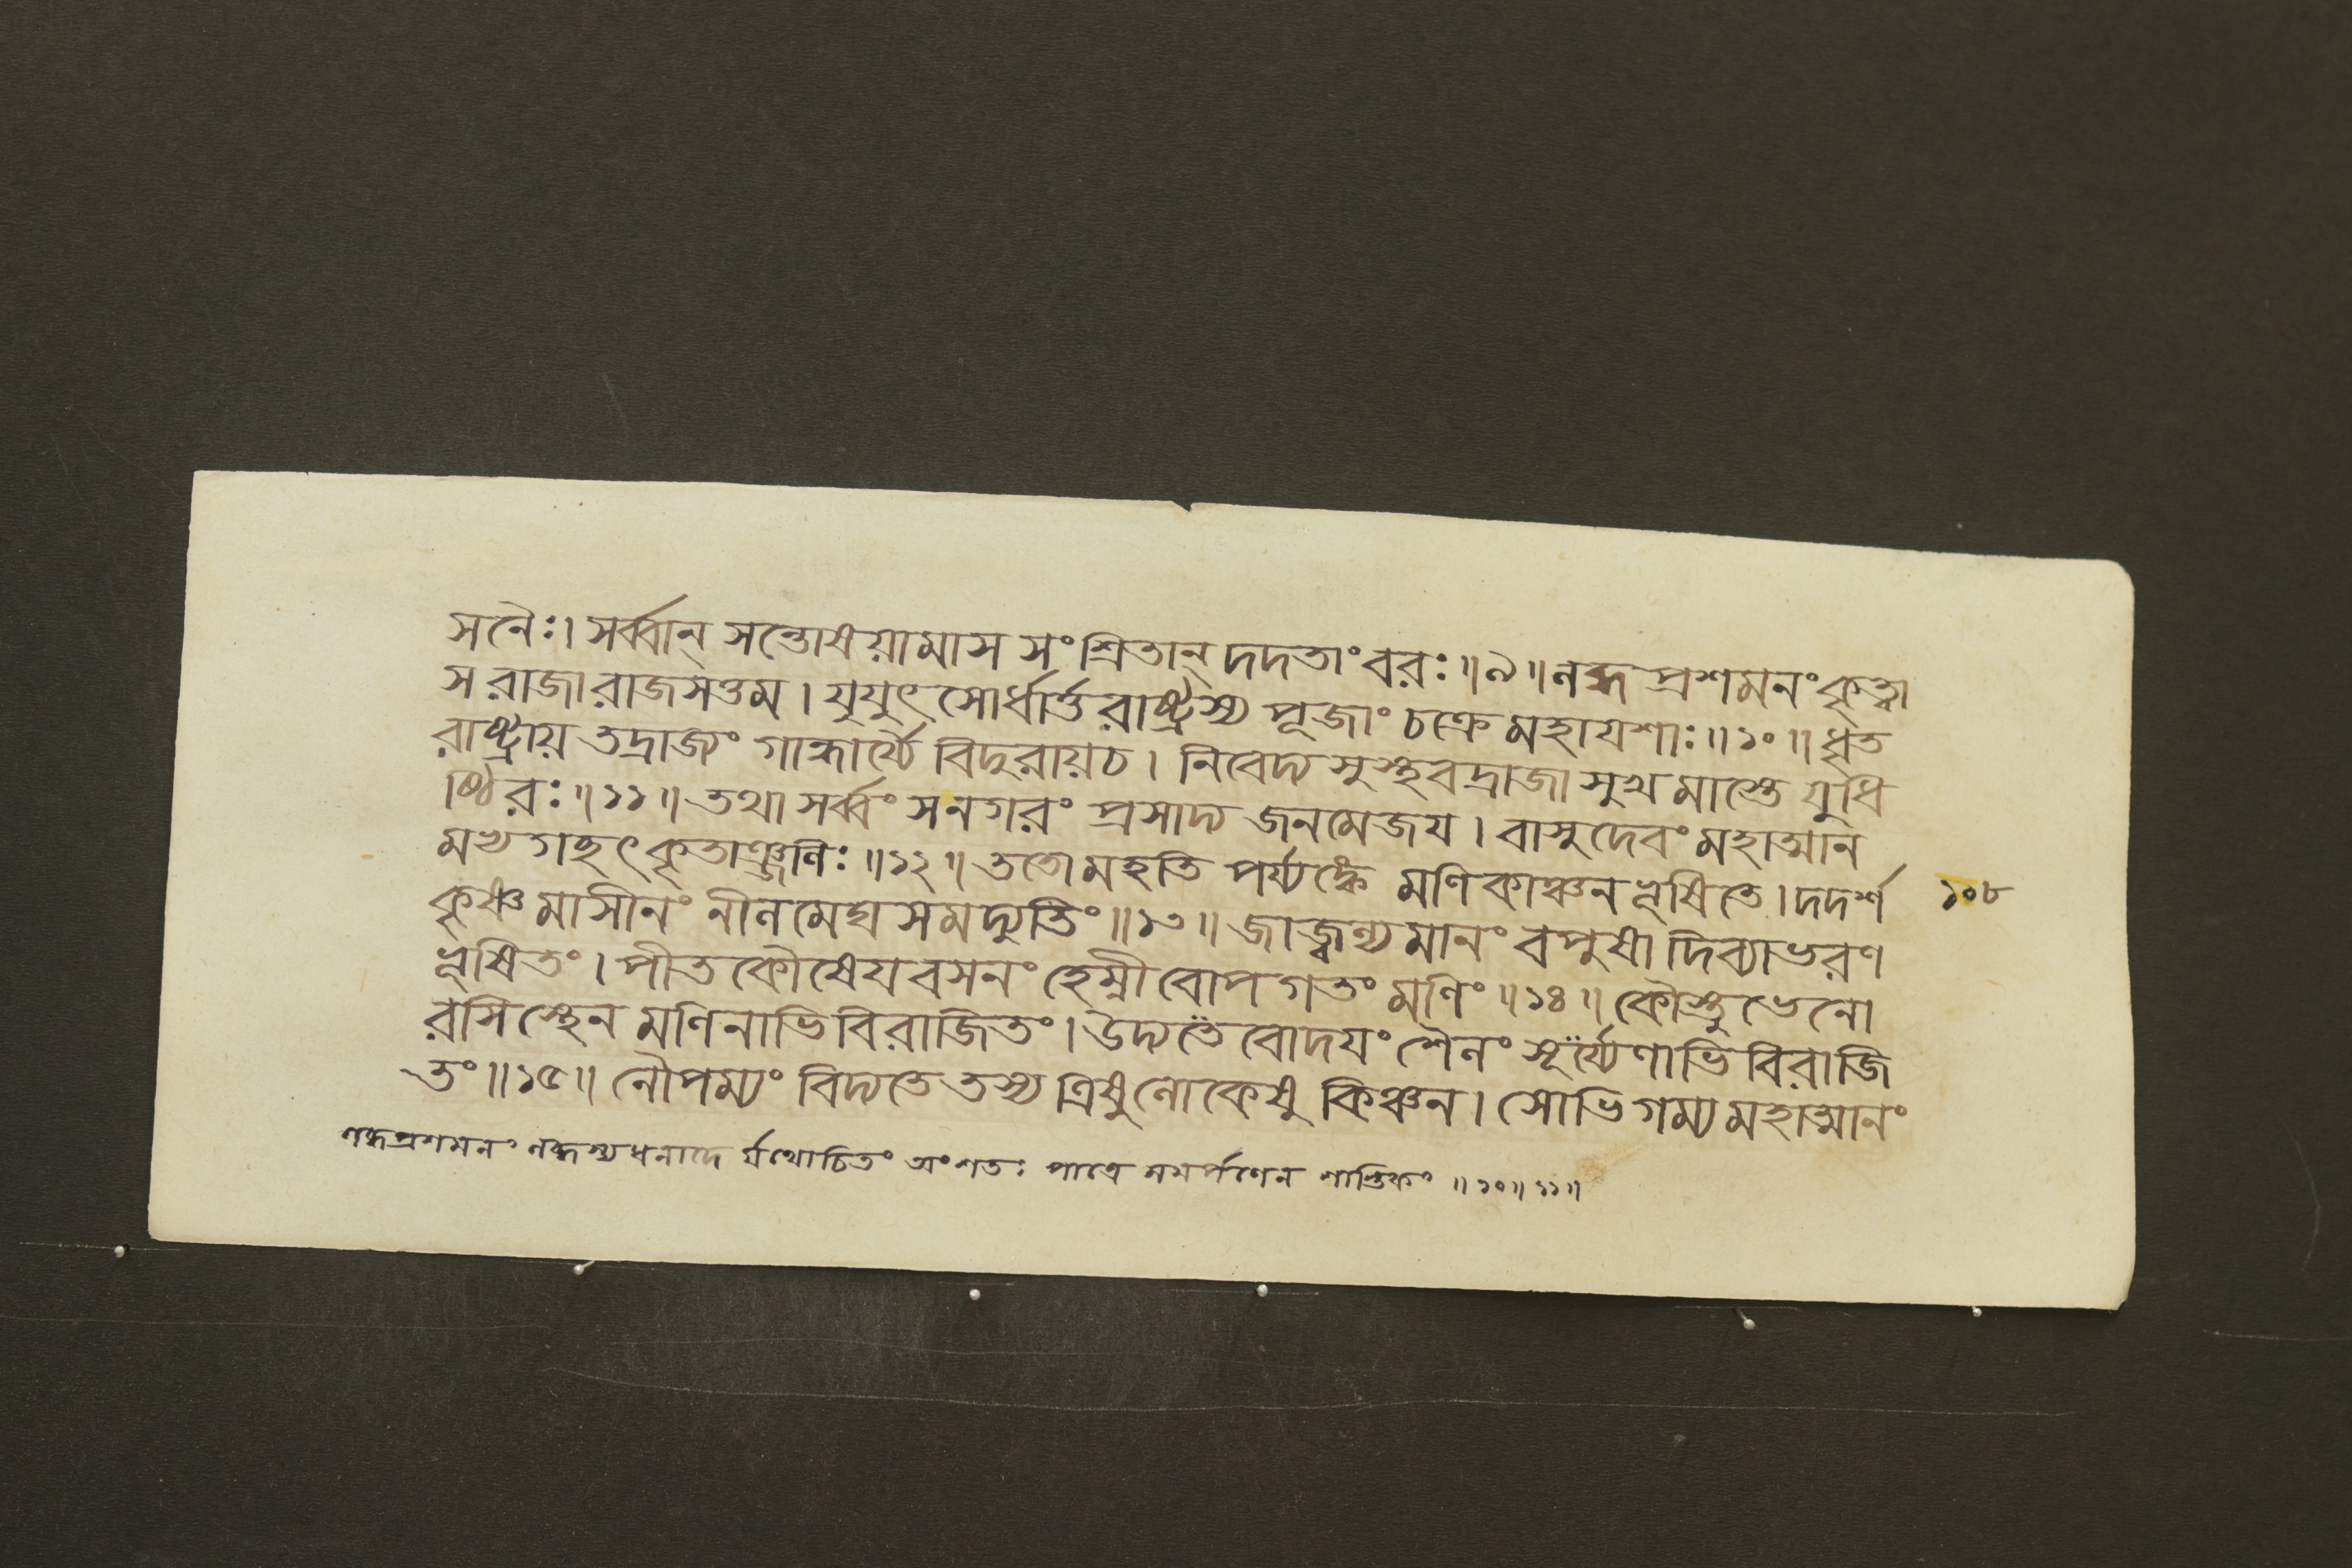 সলৈঃ। সর্ব্বান্ সন্তোষয়ামাস সংশ্রিতান্ দদতাং বরঃ॥৯॥ লব্ধ প্রশমনং কৃত্বা
স রাজা রাজসত্তম। যুযুৎসোর্ধার্ত্তরাষ্ট্রস্য পূজাং চক্রে মহাযশাঃ॥১০॥ ধৃত
রাষ্ট্রায় তদ্রাজ্যং গান্ধার্য্যৈ বিদুরায়চ। নিবেদ্য সুস্থবদ্রাজা সুখমাস্তে যুধি
ষ্ঠিরঃ॥১১॥ তথা সর্ব্বং সনগরং প্রসাদ্য জনমেজয। বাসুদেবং মহাত্মান
মভ্যগচ্ছৎকৃতাঞ্জলিঃ॥১২॥ ততো মহতি পর্য্যঙ্কে মণিকাঞ্চনভূষিতে। দদর্শ ১০৮
কৃষ্ণমাসীনং নীলমেঘসমদ্যুতিং॥১৩॥ জাজ্বল্যমানং বপুষা দিব্যাভরণ
ভূষিতং। পীতকৌষেযবসনং হেম্নীবোপগতং মণিং॥১৪॥ কৌস্তুভেনো
রসিস্থেন মণিনাভিবিরাজিতং। উদ্যতেবোদযং শৈলং সূর্য্যেণাভিবিরাজি
তং॥১৫॥ নৌপম্যং বিদ্যতে তস্য ত্রিষুলোকেষু কিঞ্চন। সোভিগম্য মহাত্মানং
লব্ধপ্রশমনং লব্ধস্যধনাদে র্যথোচিতং অংশতঃ পাত্রে সমর্পণেন শান্তিকং॥১০॥১১॥